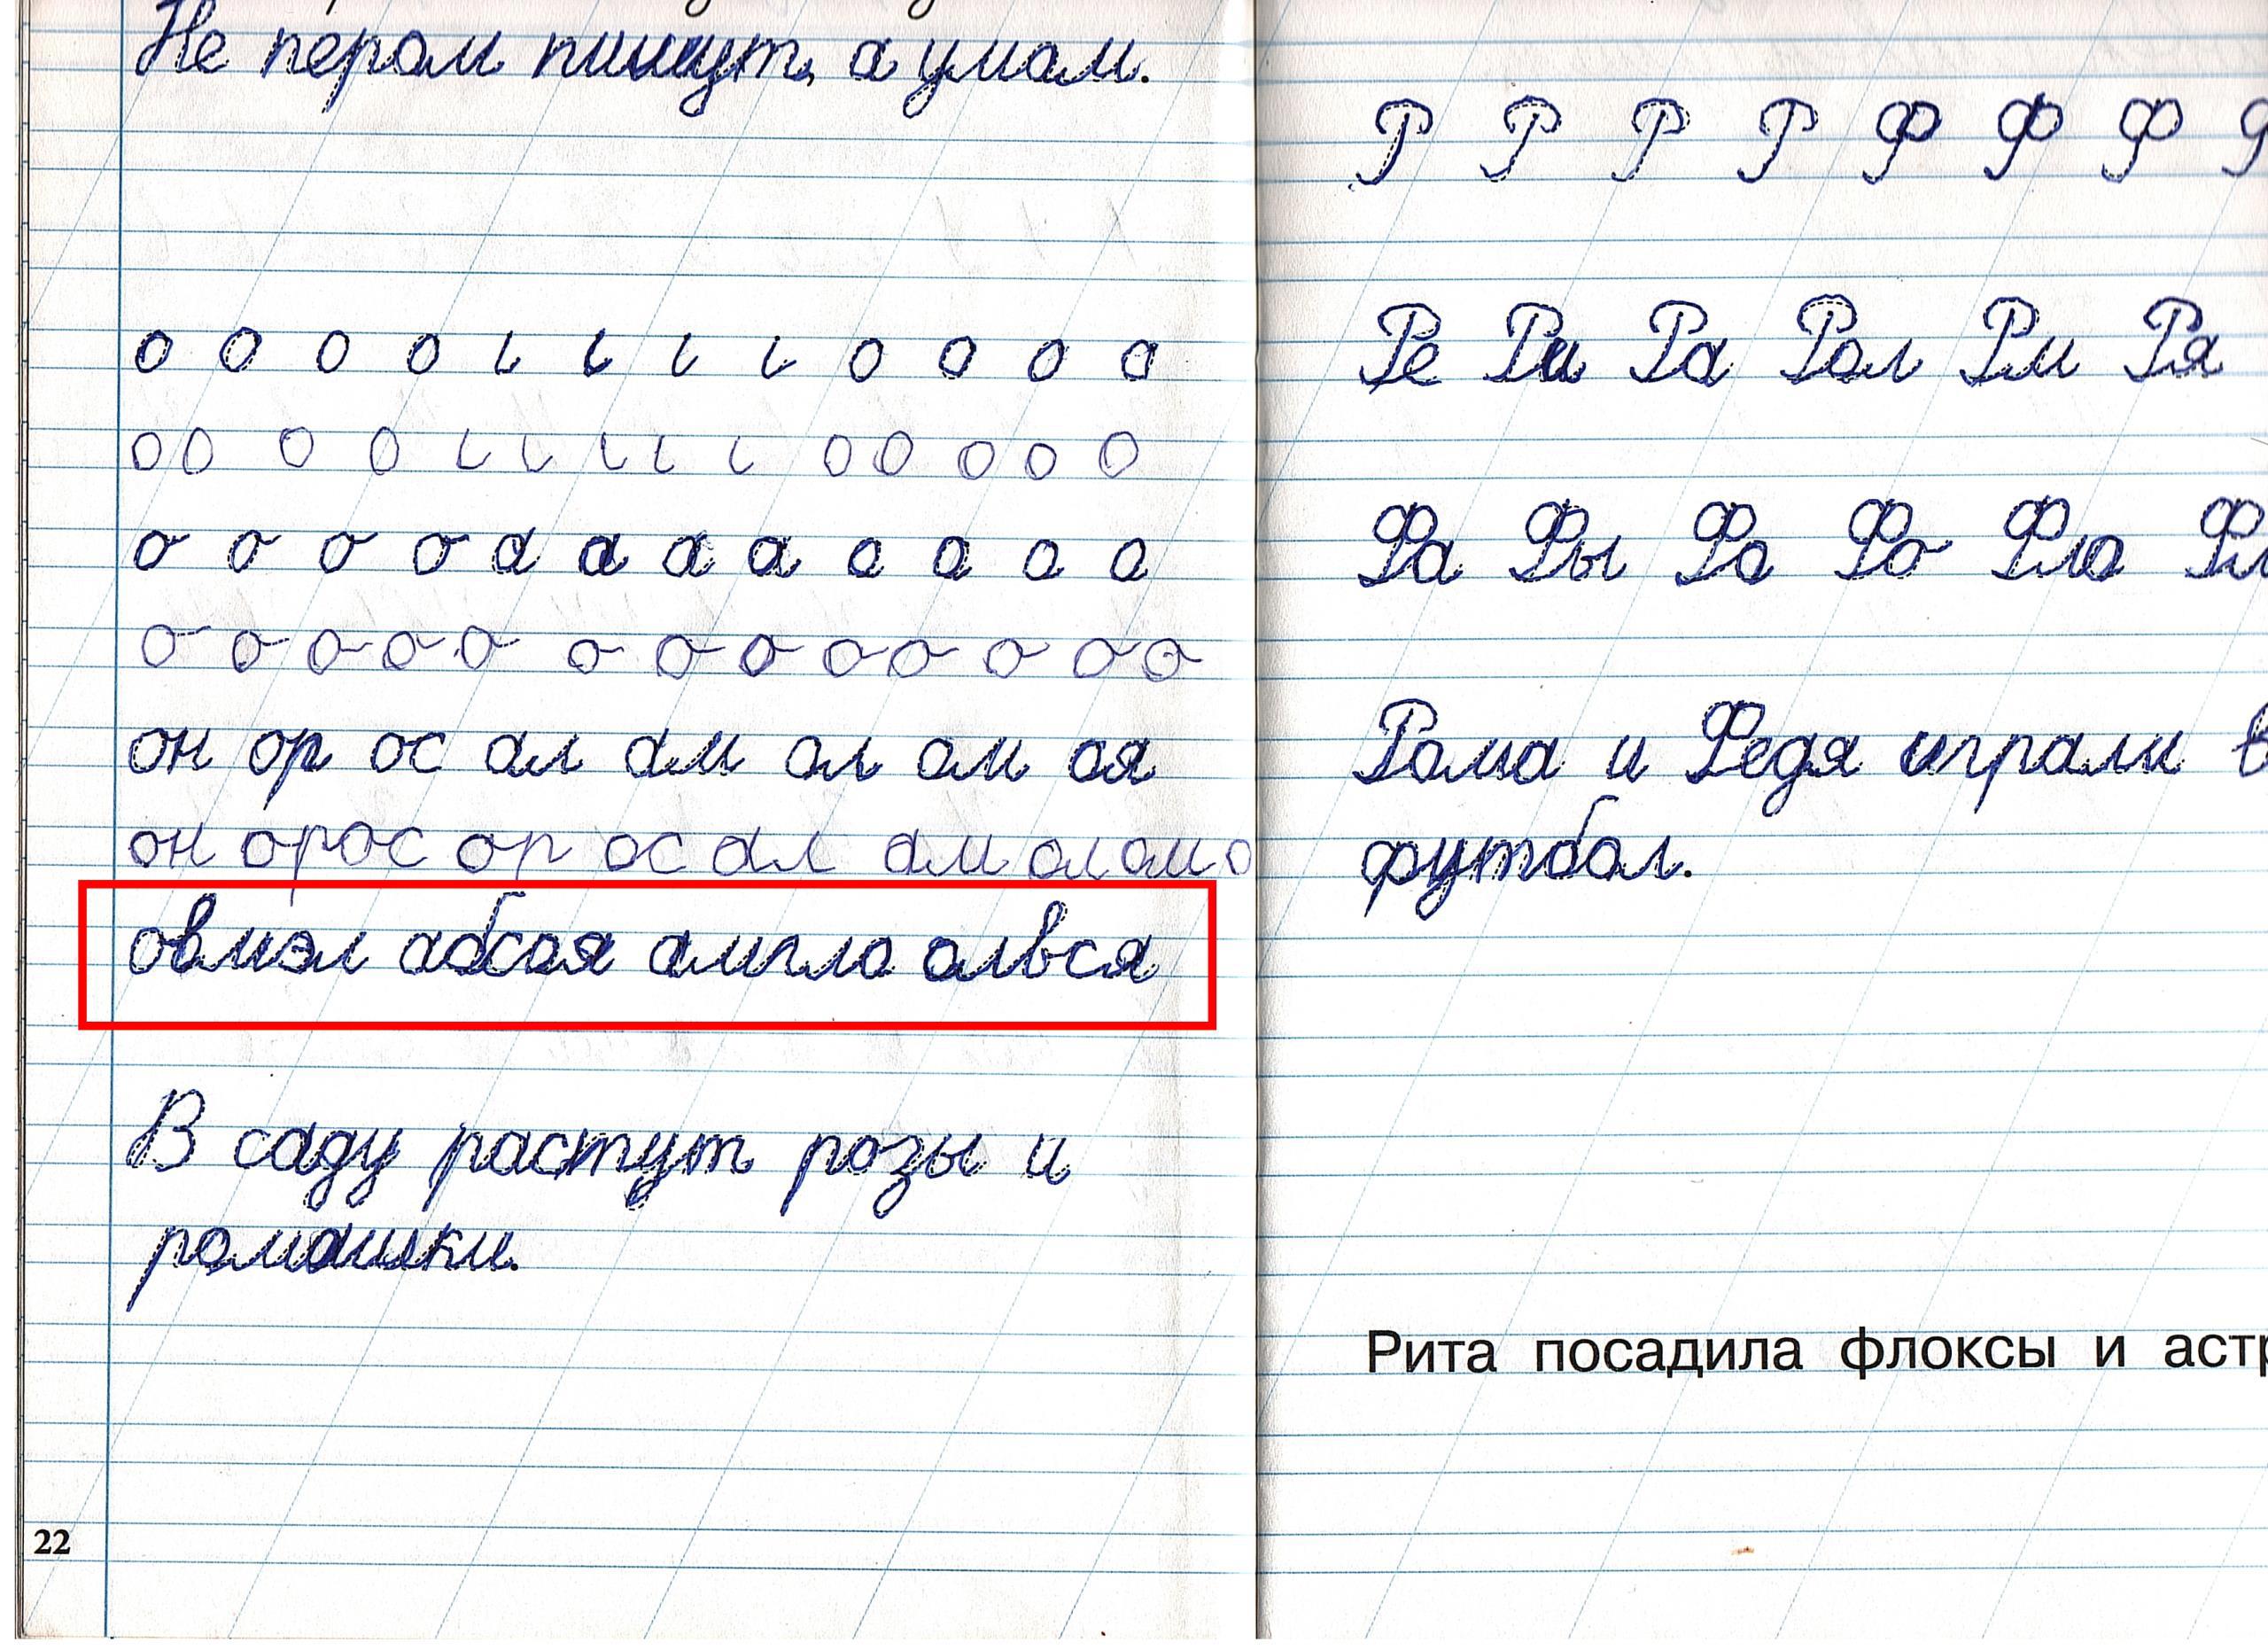 Не пером пишут, а умом.
о о о о ι ι ι ι о о о о
о о о о ι ι ι ι ι о о о о о
о о о о а а а а о о о о
о о о о о о о о о о о о о
он ор ос ал ам ол ом оя
он орос ор ос ал ам ол ом о
овмэл абсоя
В саду растут розы и
ромашки.
22
Р Р Р Р Ф Ф Ф
Ре Ри Ра Рол Рм Ря
Фа Фы Фо Фо Фло
Рома и Федя играли в
футбол.
Рита посадила флоксы и астр